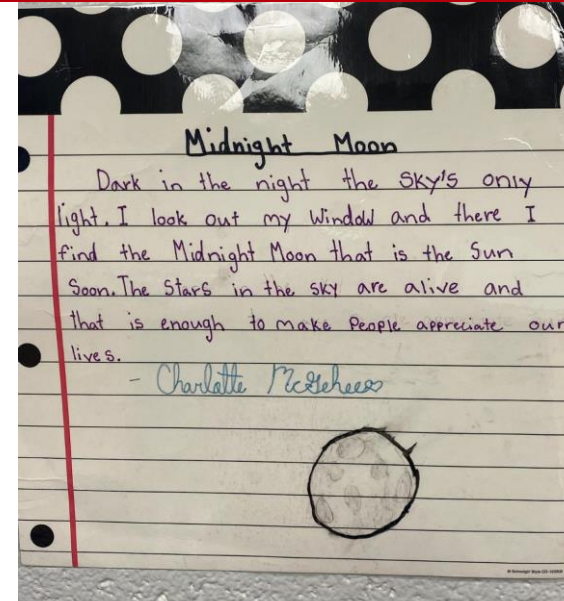 Midnight Moon
Dark in the night the Sky's only
light. I look out my Window and there I
find the Midnight Moon that is the Sun
Soon. The Stars in the sky are alive and
that is enough to make People appreciate our
lives.
- Charlotte McGehee